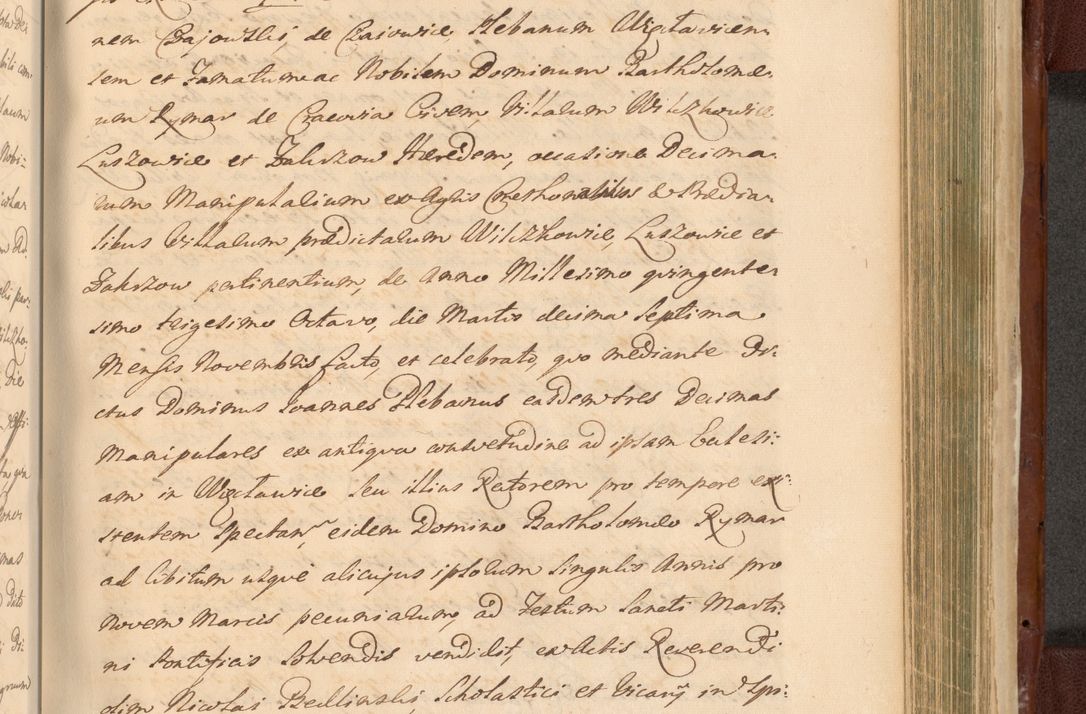 nem Czajowski, de Czaiowice Plebanum Więctavicen
sem et Zamatum ac Nobilem Dominum Bartholomæ
um Rymar de Cracovia Civem, Villarum Wilczkowice
Luszowice et Zakrzow Hæredem, occasione Decima
rum Manipularium ex Agris Cmethonalibus & Prædia
libus Villarum prædictarum Wilczkowice, Luszowice et
Zakrzow pertinentium, de Anno Millesimo quingente
simo trigesimo Octavo, die Martis decima Septima
Mensis Novembris facto, et celebrato, quo mediante Di-
ctus Dominus Joannes Plebanus easdem tres Decimas
Manipulares ex antiqua consvetudine ad ipsam Ecclesi:
am in Więctawice seu illius Rectorem pro tempore exi:
stentem Spectan, eidem Domino Bartholomæo Rymar
ad libitum usque alicujus ipsorum singulis Annis pro
Novem Marcis pecuniarum, ad Festum Sancti Marti:
ni Pontificis Solvendis vendidit, ex Actis Reverendi
olim Nicolai Bedlinski, Scholastici et Vicarij in Spi: